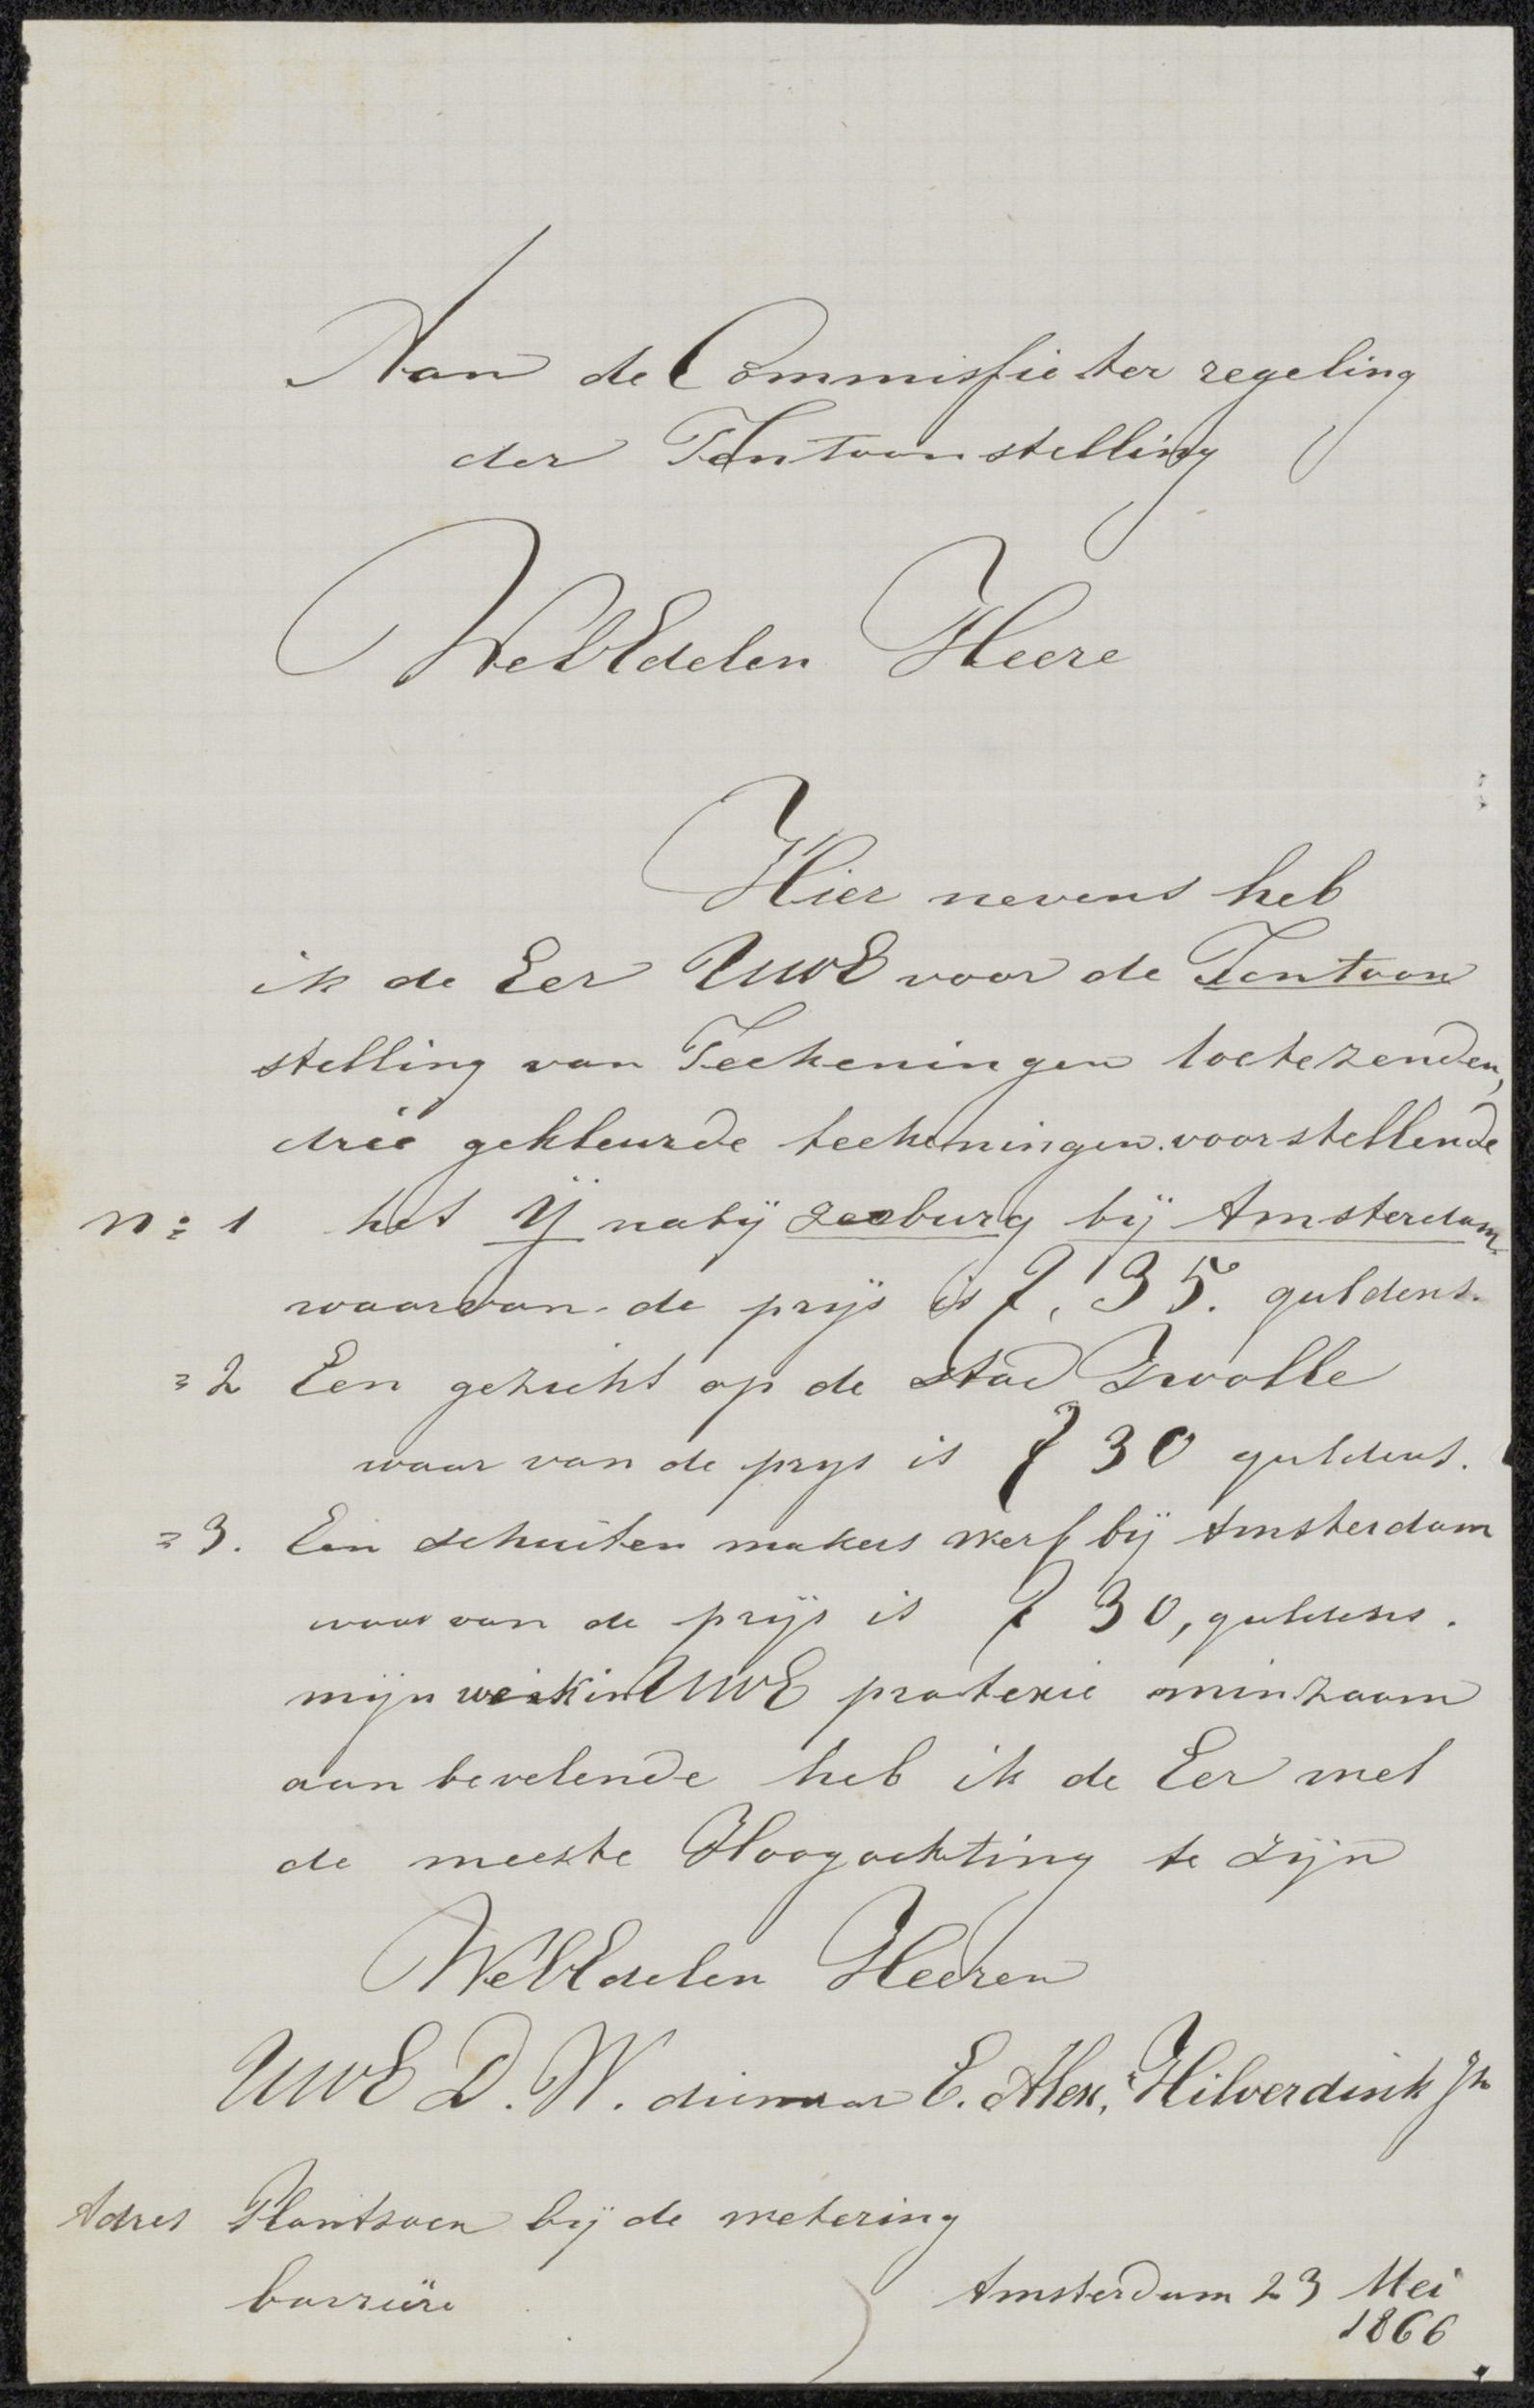 Aan de Commissie ter regeling
der Tentoonstelling
WelEdelen Heere
Hier nevens heb
ik de Eer UWE voor de Tentoon
stelling van Teekeningen toetezenden,
drie gekleurde teekeningen voorstellende
No 1 het Y naby Zeeburg by Amsterdam
waarvan de prys is ƒ, 35. guldens.
" 2 Een gezicht op de stad Zwolle
waar van de prys is ƒ 30 guldens.
" 3. Een schuiten makers werf by Amsterdam
waar van de prys is ƒ 30, guldens.
myn werk in UWE protexie minzaam
aan bevelende heb ik de Eer met
de meeste Hoogachting te zyn
WelEdelen Heeren
UWE D. W. dienaar E. Alex. Hilverdink Jr
Adres Plantsoen by de wetering
barriere
Amsterdam 23 Mei
1866